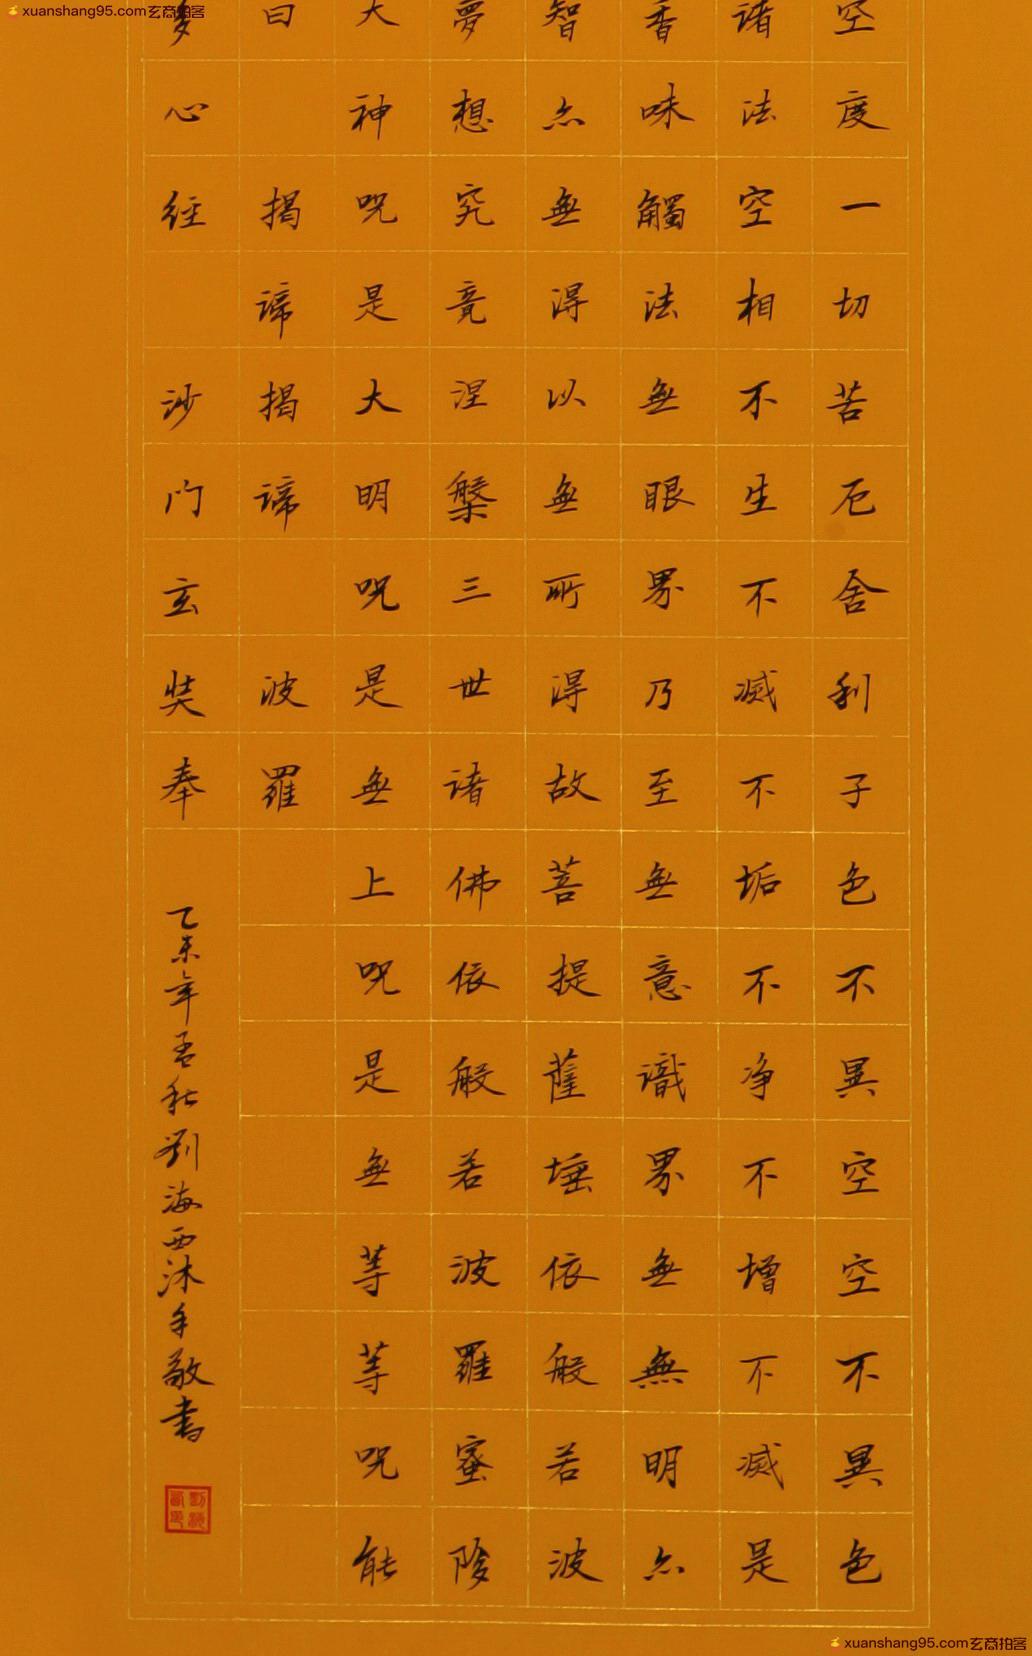 xuanshang95.com玄商拍客
空度一切苦厄舍利子色不異空空不異色
諸法空相不生不滅不垢不净不增不滅是
香味觸法無眼界乃至無意識界無無明亦
智亦無得以無所得故菩提薩埵依般若波
夢想究竟涅槃三世諸佛依般若波羅蜜
大神呪是大明呪是無上呪是無等等呪能
曰 揭諦揭諦 波羅
心經 沙門玄奘奉
乙未年孟秋劉海西沐手敬書
xuanshang95.com玄商拍客